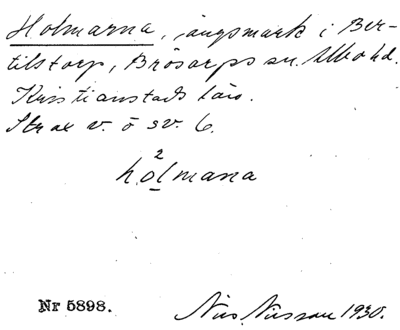 Holmarna, ängsmark i Ber-
tilstorp, Brösarps sn. Albo hd.
Kristianstads län.
Strax v. ö sv. 6.
2
holmana
Nr 5898.
Nils Nilsson 1930.